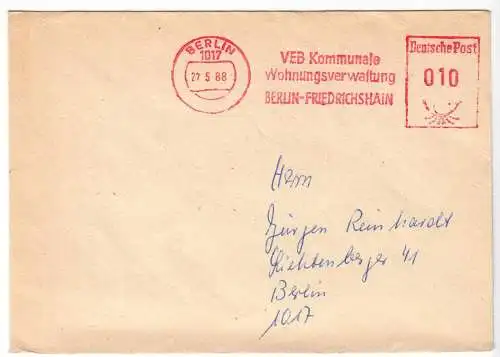 BERLIN
1017
27 5 88
VEB Kommunale
Wohnungsverwaltung
BERLIN-FRIEDRICHSHAIN
Deutsche Post
010
Herrn
Jürgen Reinhardt
Lichtenberger 41
Berlin
1017